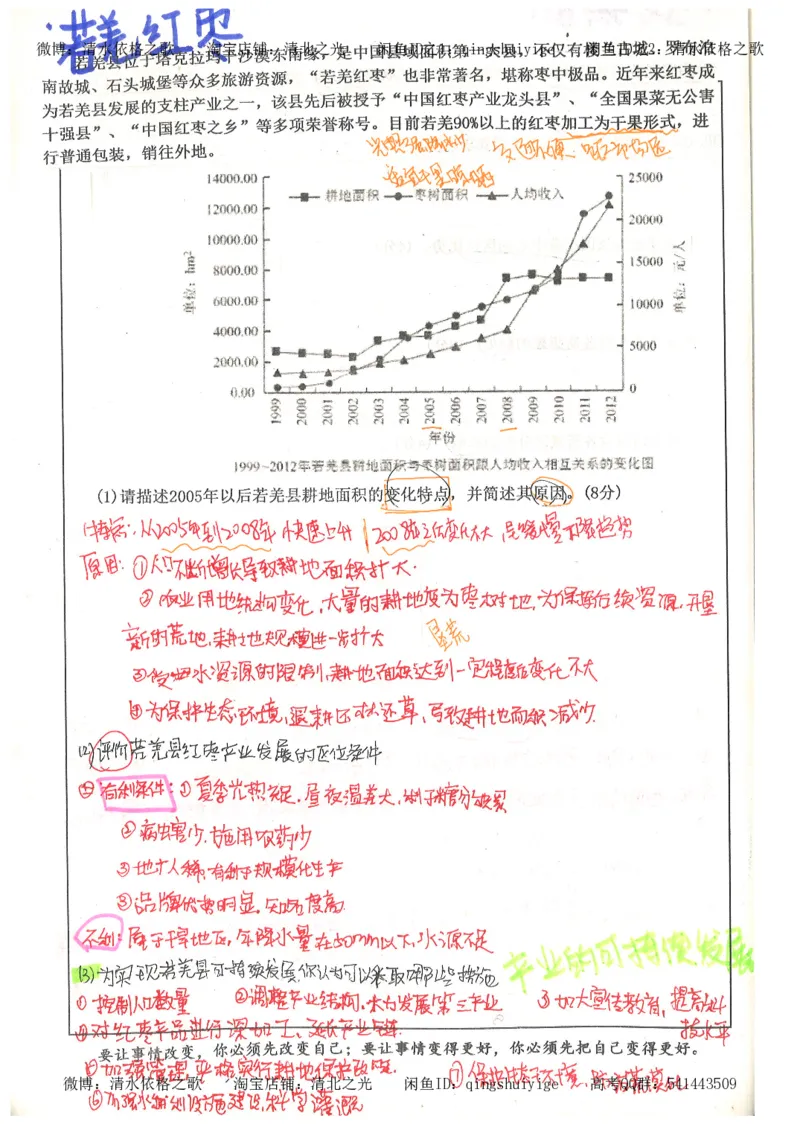 若羌红枣
微博：清水依格之歌 淘宝店铺：清北之光 闲鱼ID：qingshuiyige 高考QQ群2：清水依格之歌
若羌县位于塔克拉玛干沙漠东南缘，是中国县域面积第一大县，不仅有楼兰古城、罗布泊
南故城、石头城堡等众多旅游资源，“若羌红枣”也非常著名，堪称枣中极品。近年来红枣成
为若羌县发展的支柱产业之一，该县先后被授予“中国红枣产业龙头县”、“全国果菜无公害
十强县”、“中国红枣之乡”等多项荣誉称号。目前若羌90%以上的红枣加工为干果形式，进
行普通包装，销往外地。
14000.00
12000.00
10000.00
8000.00
6000.00
4000.00
2000.00
0.00
单位：hm²
耕地面积 枣树面积 人均收入
25000
20000
15000
10000
5000
0
单位：元/人
1999 2000 2001 2002 2003 2004 2005 2006 2007 2008 2009 2010 2011 2012
年份
1999~2012年若羌县耕地面积与枣树面积跟人均收入相互关系的变化图
(1)请描述2005年以后若羌县耕地面积的变化特点，并简述其原因。(8分)
特点：从2005年到2008年快速上升 2008年之后变化不大，呈缓慢下降趋势
原因：①人口不断增长导致耕地面积扩大.
②农业用地结构变化，大量的耕地变为枣树地，为保障后续资源，开垦
新的荒地，耕地规模进一步扩大
垦荒
③受水资源的限制，耕地面积达到一定程度后变化不大
④为保护生态环境，退耕还林还草，导致耕地面积减少.
(2)评价若羌县红枣产业发展的区位条件
有利条件：①夏季光热充足，昼夜温差大，利于糖分积累
②病虫害少，施用农药少
③地广人稀，有利于规模化生产
③品牌优势明显，知名度高
不利：属于干旱地区，年降水量在50mm以下，水源不足
产业的可持续发展
(3)为实现若羌县可持续发展，你认为可以采取哪些措施
①控制人口数量 ②调整产业结构，大力发展第三产业 ③加大宣传教育，提高科
技水平
④对红枣产品进行深加工、延长产业链.
要让事情改变，你必须先改变自己；要让事情变得更好，你必须先把自己变得更好。
⑤加强管理，严格实行耕地保护政策.
⑦保护生态环境，防治荒漠化
微博：清水依格之歌 淘宝店铺：清北之光 闲鱼ID：qingshuiyige 高考QQ群：541443509
⑥加强水利设施建设，科学灌溉